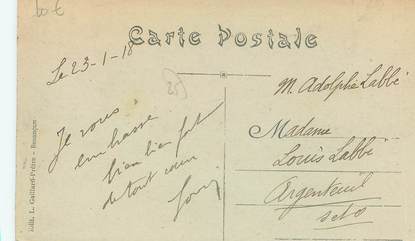 Carte Postale
Le 23-1-18
Je vous
embrasse
bien bien fort
de tout cœur
M. Adolphe Labbé
Madame
Louis Labbé
Argenteuil
S et O
Edit. L. Gaillard-Prêtre - Besançon